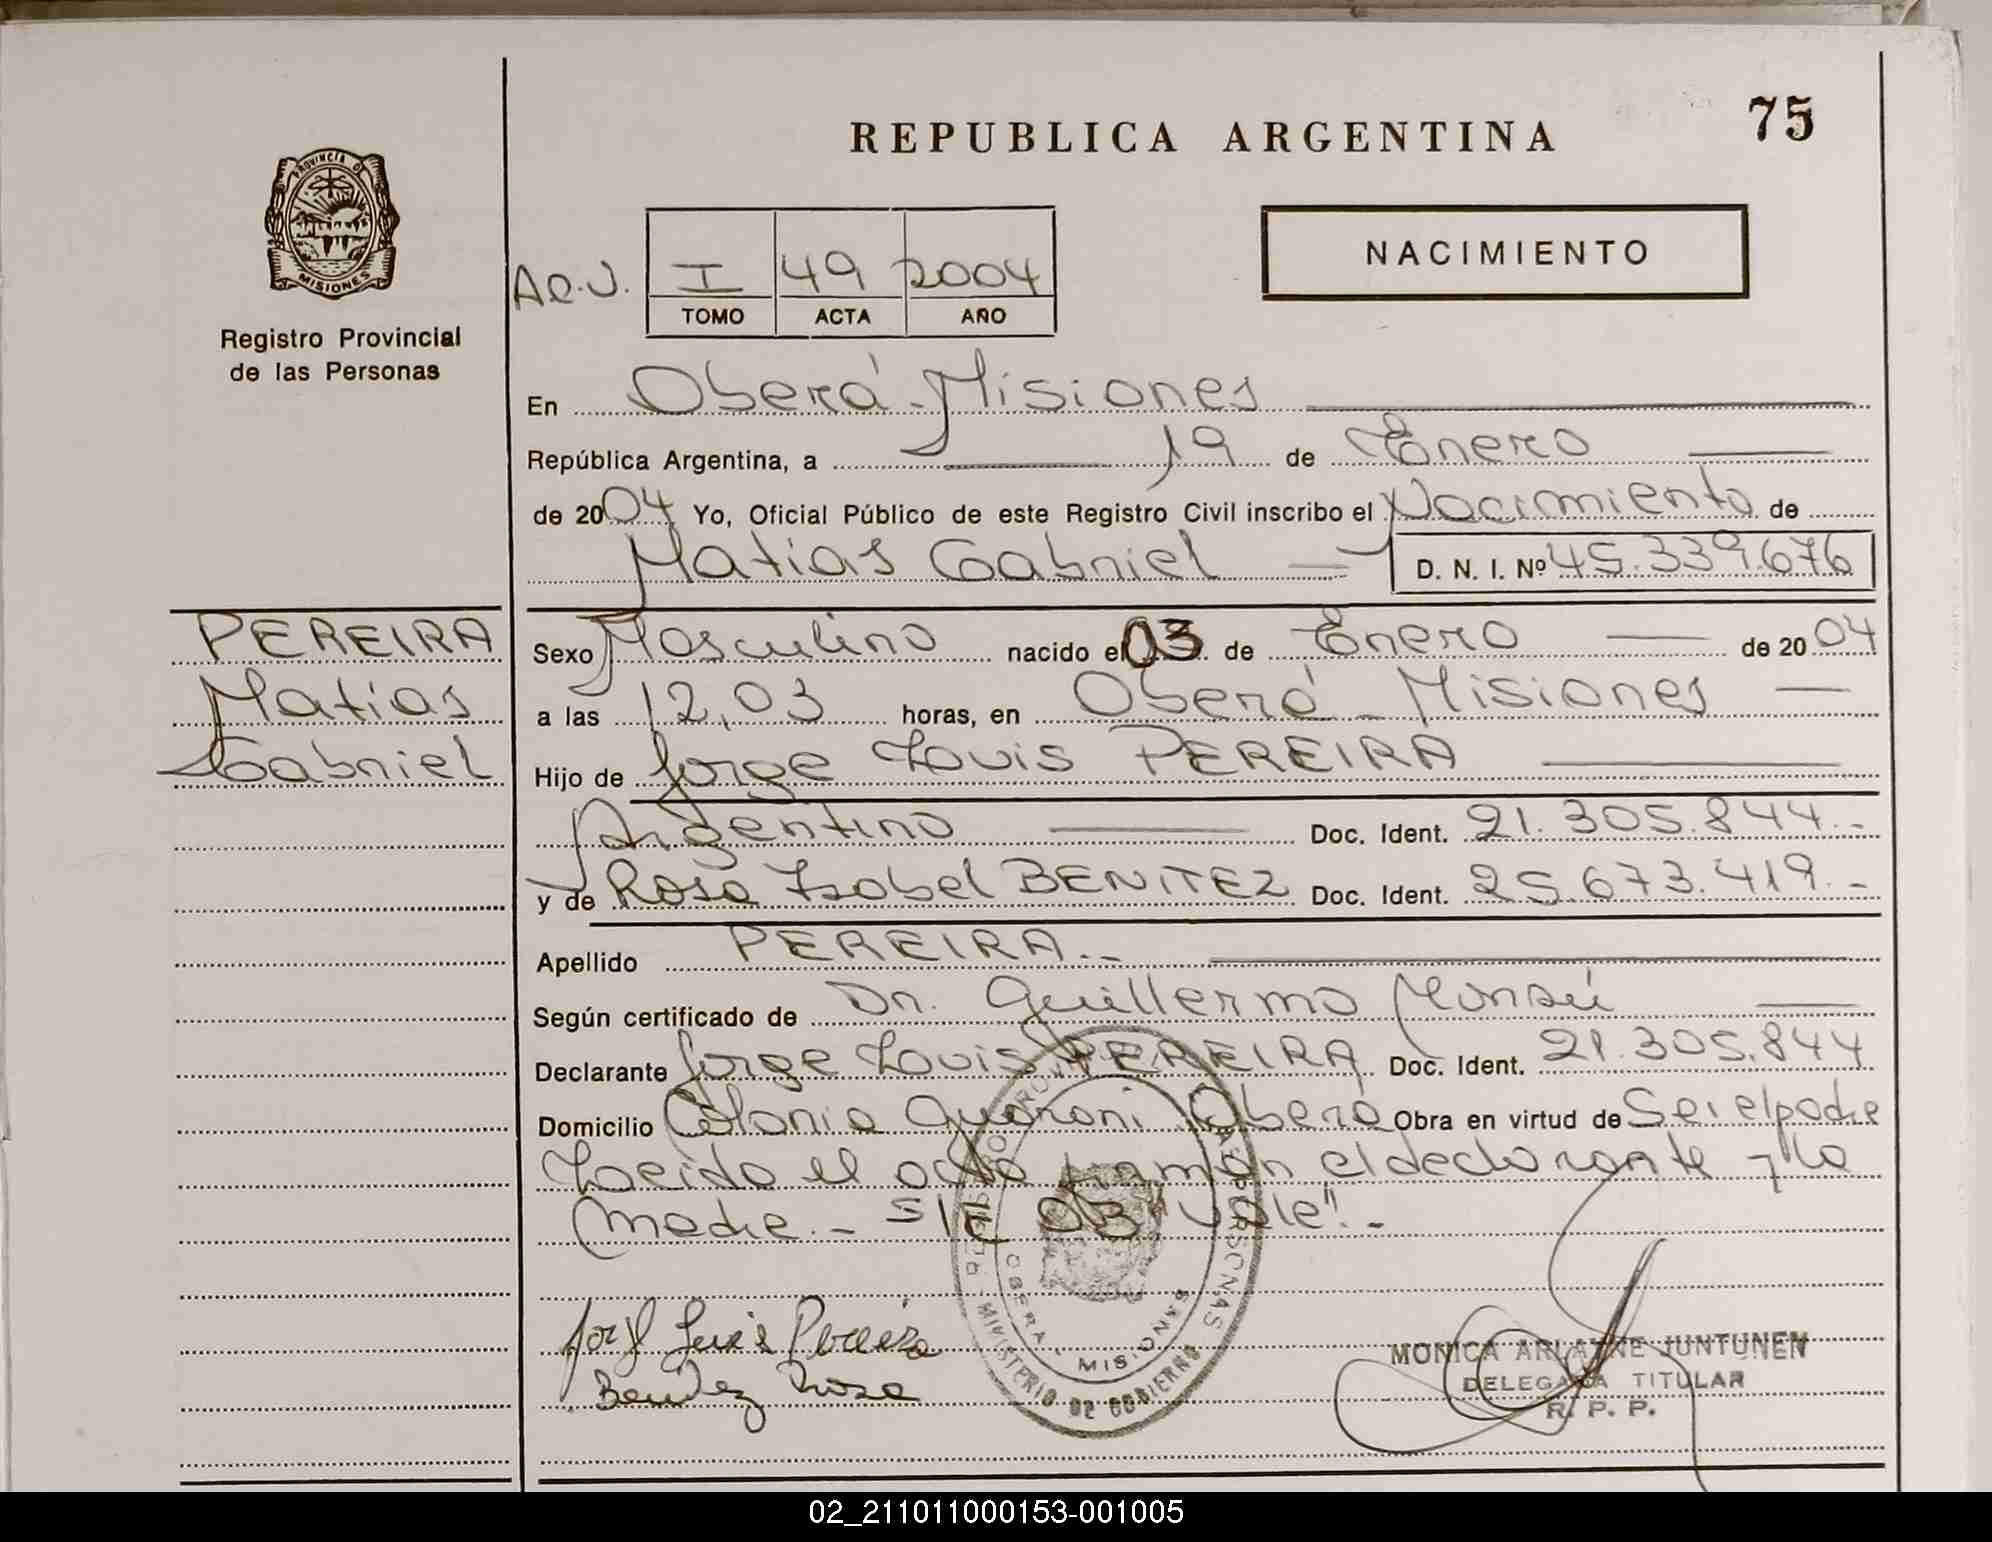 REPUBLICA ARGENTINA
75
PROVINCIA DE
MISIONES
Registro Provincial
de las Personas
NACIMIENTO
I 49 2004
TOMO ACTA AÑO
En Oberá - Misiones
República Argentina, a 19 de Enero
de 2004 Yo, Oficial Público de este Registro Civil inscribo el Nacimiento de
Matias Gabriel D. N. I. Nº 45.339.676
PEREIRA
Matias
Gabriel
Sexo Masculino nacido el 03 de Enero de 2004
a las 12,03 horas, en Oberá - Misiones
Hijo de Jorge Louis PEREIRA
Argentino Doc. Ident. 21.305.844.-
y de Rosa Isabel BENITEZ Doc. Ident. 25.673.419.-
Apellido PEREIRA.-
Según certificado de Dr. Guillermo
Declarante Jorge Louis PEREIRA Doc. Ident. 21.305.844
Domicilio Colonia Guaraní Oberá Obra en virtud de Ser el padre
Leido el acta firman el declarante y la
madre.- S/E "03" Vale".-
Jorge Luis Pereira
Benitez Rosa
REGISTRO PROVINCIAL DE LAS PERSONAS
OBERA MISIONES
MINISTERIO DE GOBIERNO
MONICA ARIANNE JUNTUNEN
DELEGADA TITULAR
R. P. P.
02_211011000153-001005